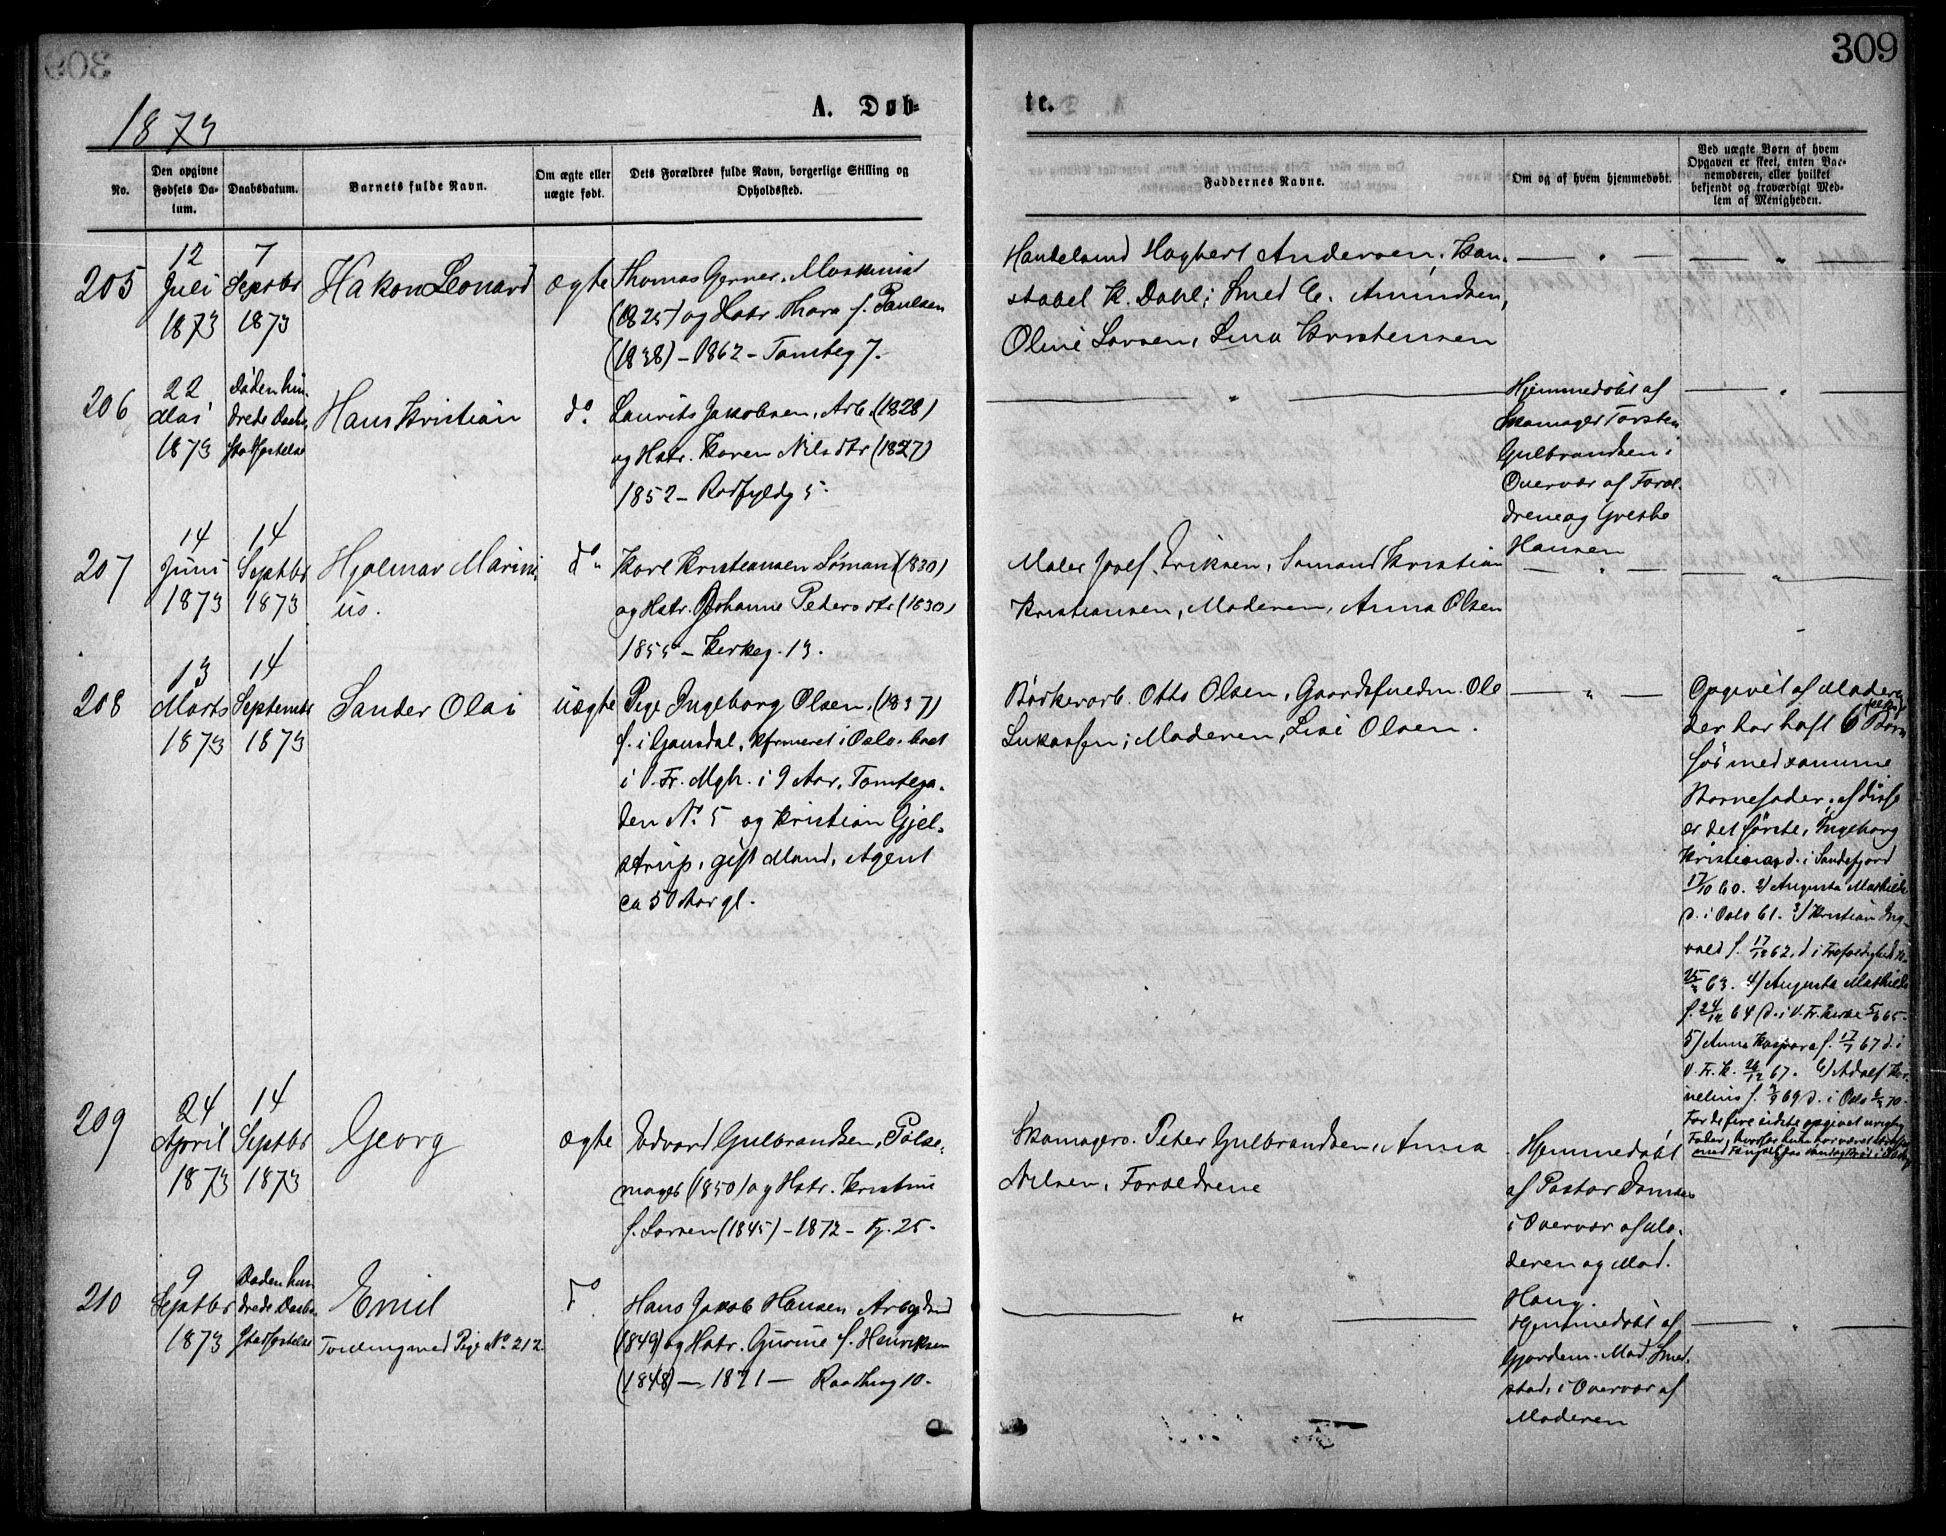 309
1873
A. Døb-
te.
No.
Den opgivne
Fødsels Da-
tum.
Daabsdatum.
Barnets fulde Navn.
Om ægte eller
uægte født.
Dets Forældres fulde Navn, borgerlige Stilling og
Opholdssted.
Faddernes Navne.
Om og af hvem hjemmedøbt.
Ved uægte Børn af hvem
Opgaven er skeet, enten Bar-
nemoderen, eller hvilket
bekjendt og troværdigt Med-
lem af Menigheden.
205
12
Juli
1873
7
Septbr
1873
Hakon Leonard
ægte
Thomas Gerner, Maskinist
(1825) og Hstr. Thora f. Paulsen
(1838) - 1862 - Tomteg 7.
Handelsmd Hagbert Andersen, Kon-
stabel K. Dahl; Smed C. Amundsen,
Oline Larsen, Lina Kristensen
206
22
Mai
1873
Døden hin-
drede Daabs
Stadfæstelse
Hans Kristian
do.
Laurits Jakobsen, Arb. (1828)
og Hstr. Karen Nilsdtr (1827)
1852 - Rødfyldg 5.
Hjemmedøbt af
Skomager Torsten
Gulbrandsen i
Overvær af Foræl-
drene og Grethe
Hansen
207
14
Juni
1873
14
Septbr
1873
Hjalmar Marini-
us.
do
Karl Kristiansen Sømand (1830)
og Hstr. Johanne Pedersdtr (1830)
1855 - Kirkeg. 13.
Maler Joolf Eriksen, Sømand Kristian
Kristiansen, Moderen, Anna Olsen
208
13
Marts
1873
14
Septembr
1873
Sander Olai
uægte
Pige Ingeborg Olsen, (1837)
f. i Gausdal, kfrmeret i Oslo, boet
i V. Fr. Mgh. i 9 Aar, Tomtega-
den No 5 og Kristian Gjel-
strup, gift Mand, Agent
ca 50 Aar gl.
Børkerarb. Otto Olsen, Gaardsfuldm. Ole
Lukassen; Moderen, Lise Olsen.
Opgivet af Moderen
der har haft 6 Børn
før med samme
Barnefader; af disse
er det første, Ingeborg
Kristiane d. i Sandefjord
17/10 60. 2) Augusta Mathilde
d. i Oslo 61. 3) Kristian Ing-
vald f. 17/12 62, d. i Trefoldighed K.
25/3 63. 4) Augusta Mathilde
f. 24/12 64 d. i V. Fr. Kirke 5/6 65.
5) Anna Kaspara f. 17/7 67 d. i
V. Fr. K. 26/12 67. 6) Adolf Kor-
nelius f. 69 d. i Oslo 70.
For de fire sidste opgivet urigtig
Fader, hvorfor hun har været straffet
med Fængsel
209
24
April
1873
14
Septbr
1873
Georg
ægte
Edvard Gulbrandsen, Pølse-
mager (1850) og Hstr. Kristine
f. Larsen (1845) - 1872 - Tg. 25.
Skomagersv. Peter Gulbrandsen, Anna
Nilsen, Forældrene
Hjemmedøbt
af Pastor Damsen
i Overvær af Mo-
deren og Mad.
Haug.
210
9
Septbr
1873
Døden hin-
drede Daabs
Stadfæstelse
Emil
Tvilling med Pige No. 212
do.
Hans Jakob Hansen Arbejdsmd
(1849) og Hstr. Gurine f. Henriksen
(1848) - 1871 - Raadhusg 10.
Hjemmedøbt af
Gjordem. Mad. Smed-
stad, i Overvær af
Moderen